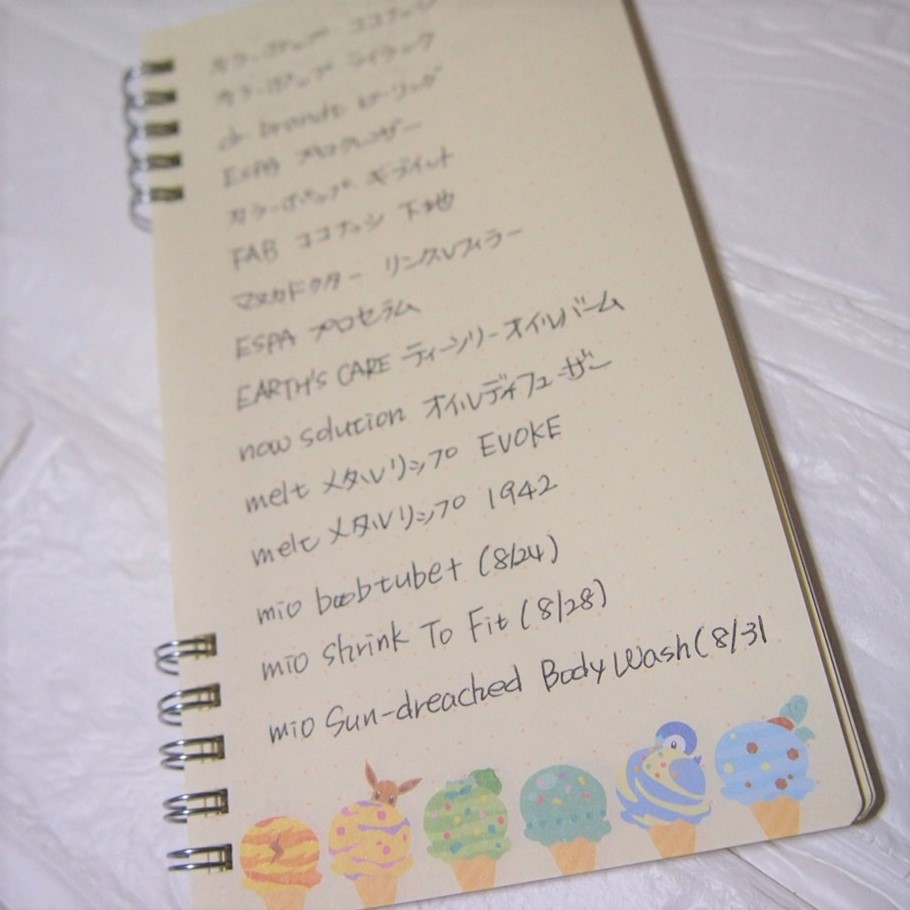 カラーポップ ココナッツ
カラーポップ ライラック
dr. brandt ピーリング
ESPA プロクレンザー
カラーポップ
FAB ココナッツ 下地
マヌカドクター リンクルフィラー
ESPA プロセラム
EARTH'S CARE ティーツリーオイルバーム
now solution オイルディフューザー
melt メタルリップ EVOKE
melt メタルリップ 1942
mio boobtube+ (8/24)
mio Shrink To Fit (8/28)
mio Sun-dreached Body Wash (8/31